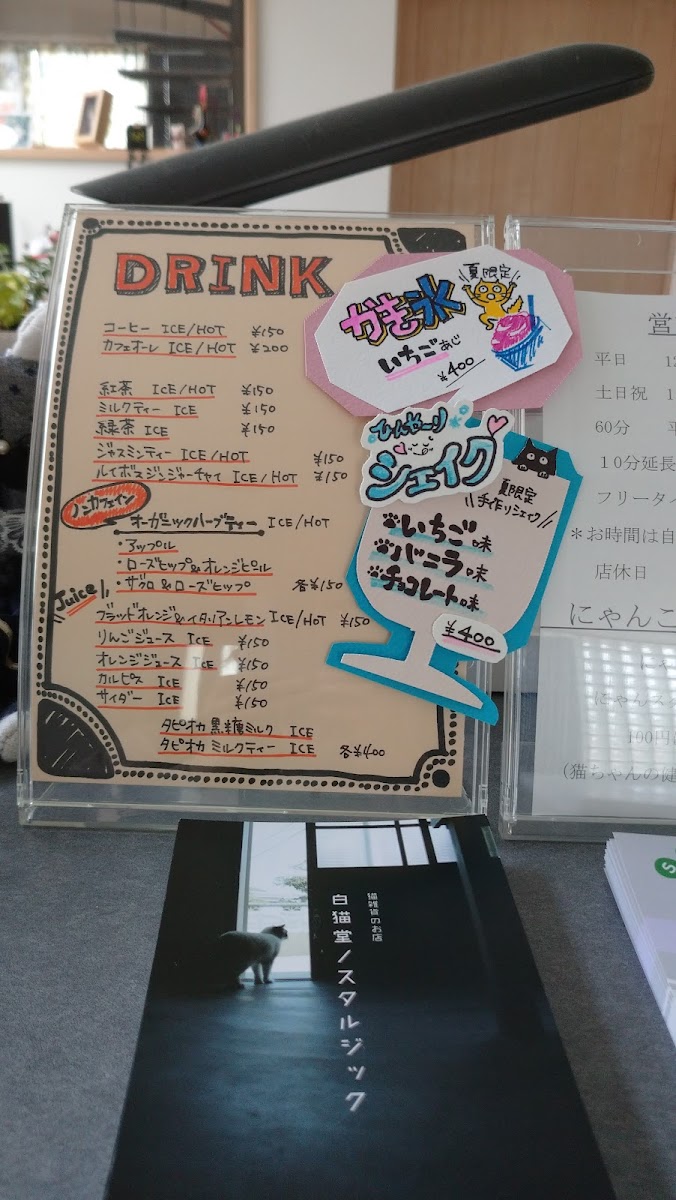 DRINK
コーヒー ICE/HOT ¥150
カフェオーレ ICE/HOT ¥200
紅茶 ICE/HOT ¥150
ミルクティー ICE ¥150
緑茶 ICE ¥150
ジャスミンティー ICE/HOT ¥150
ルイボスジンジャーチャイ ICE/HOT ¥150
ノンカフェイン
オーガニックハーブティー ICE/HOT
・アップル
・ローズヒップ&オレンジピール
・ザクロ&ローズヒップ 各¥150
Juice
ブラッドオレンジ&イタリアンレモン ICE/HOT ¥150
りんごジュース ICE ¥150
オレンジジュース ICE ¥150
カルピス ICE ¥150
サイダー ICE ¥150
タピオカ黒糖ミルク ICE
タピオカ ミルクティー ICE 各¥400
夏限定
かき氷
いちごあじ
¥400
ひんやーり
シェイク
夏限定
手作りシェイク
いちご味
バニラ味
チョコレート味
¥400
営
平日
土日祝
60分
10分延長
フリータイ
＊お時間は自
店休日
にゃんこ
(猫ちゃんの健
猫雑貨のお店
白猫堂ノスタルジック